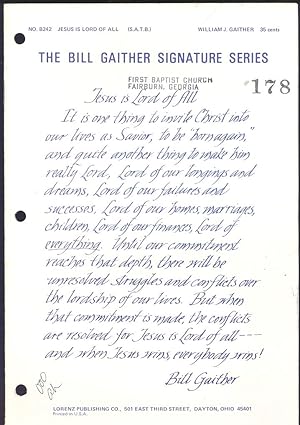 NO. 8242 JESUS IS LORD OF ALL (S.A.T.B.) WILLIAM J. GAITHER 35 cents
THE BILL GAITHER SIGNATURE SERIES
FIRST BAPTIST CHURCH
FAIRBURN, GEORGIA
178
Jesus is Lord of All
It is one thing to invite Christ into
our lives as Savior, to be "born again,"
and quite another thing to make him
really Lord, Lord of our longings and
dreams, Lord of our failures and
successes, Lord of our homes, marriages,
children, Lord of our finances, Lord of
everything. Until our commitment
reaches that depth, there will be
unresolved struggles and conflicts over
the lordship of our lives. But when
that commitment is made, the conflicts
are resolved for Jesus is Lord of all---
and when Jesus wins, everybody wins!
Bill Gaither
LORENZ PUBLISHING CO., 501 EAST THIRD STREET, DAYTON, OHIO 45401
Printed in U.S.A.